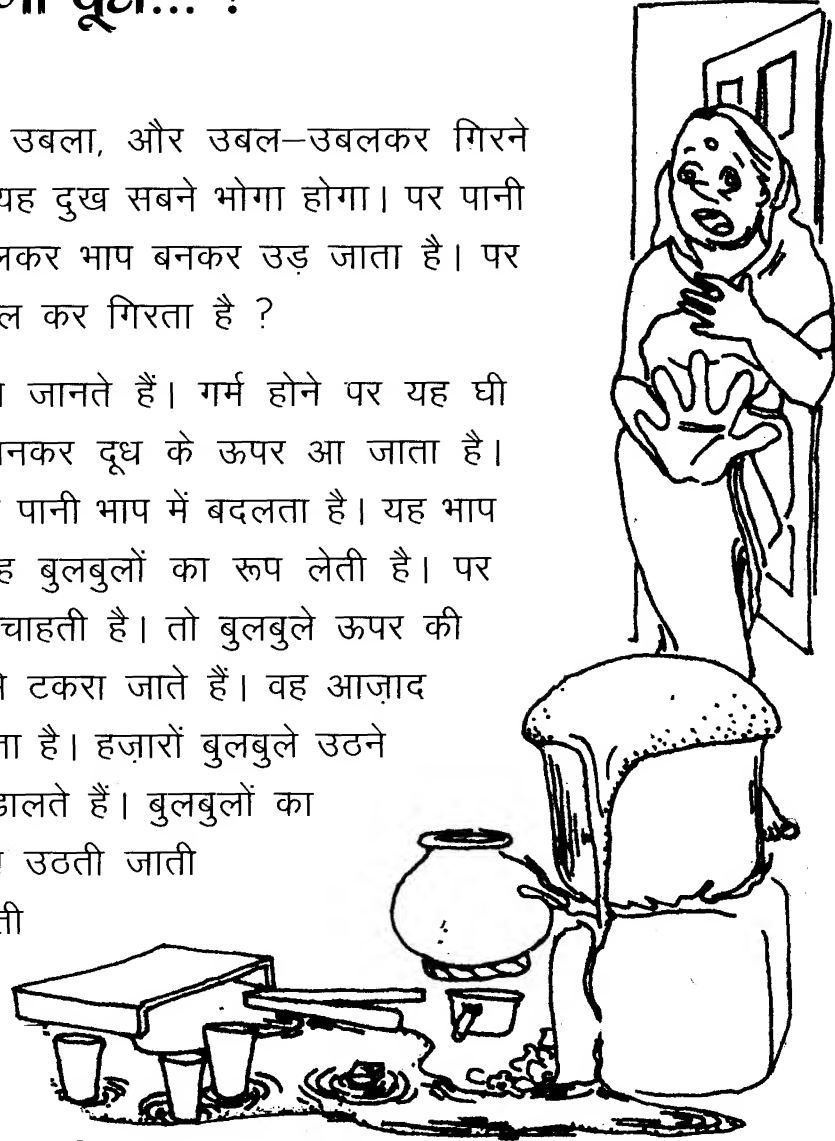 दूध... ?
उबला, और उबल–उबलकर गिरने
यह दुख सबने भोगा होगा। पर पानी
लकर भाप बनकर उड़ जाता है। पर
ल कर गिरता है ?
जानते हैं। गर्म होने पर यह घी
नकर दूध के ऊपर आ जाता है।
पानी भाप में बदलता है। यह भाप
ह बुलबुलों का रूप लेती है। पर
चाहती है। तो बुलबुले ऊपर की
टकरा जाते हैं। वह आज़ाद
ता है। हज़ारों बुलबुले उठने
डालते हैं। बुलबुलों का
उठती जाती
ती